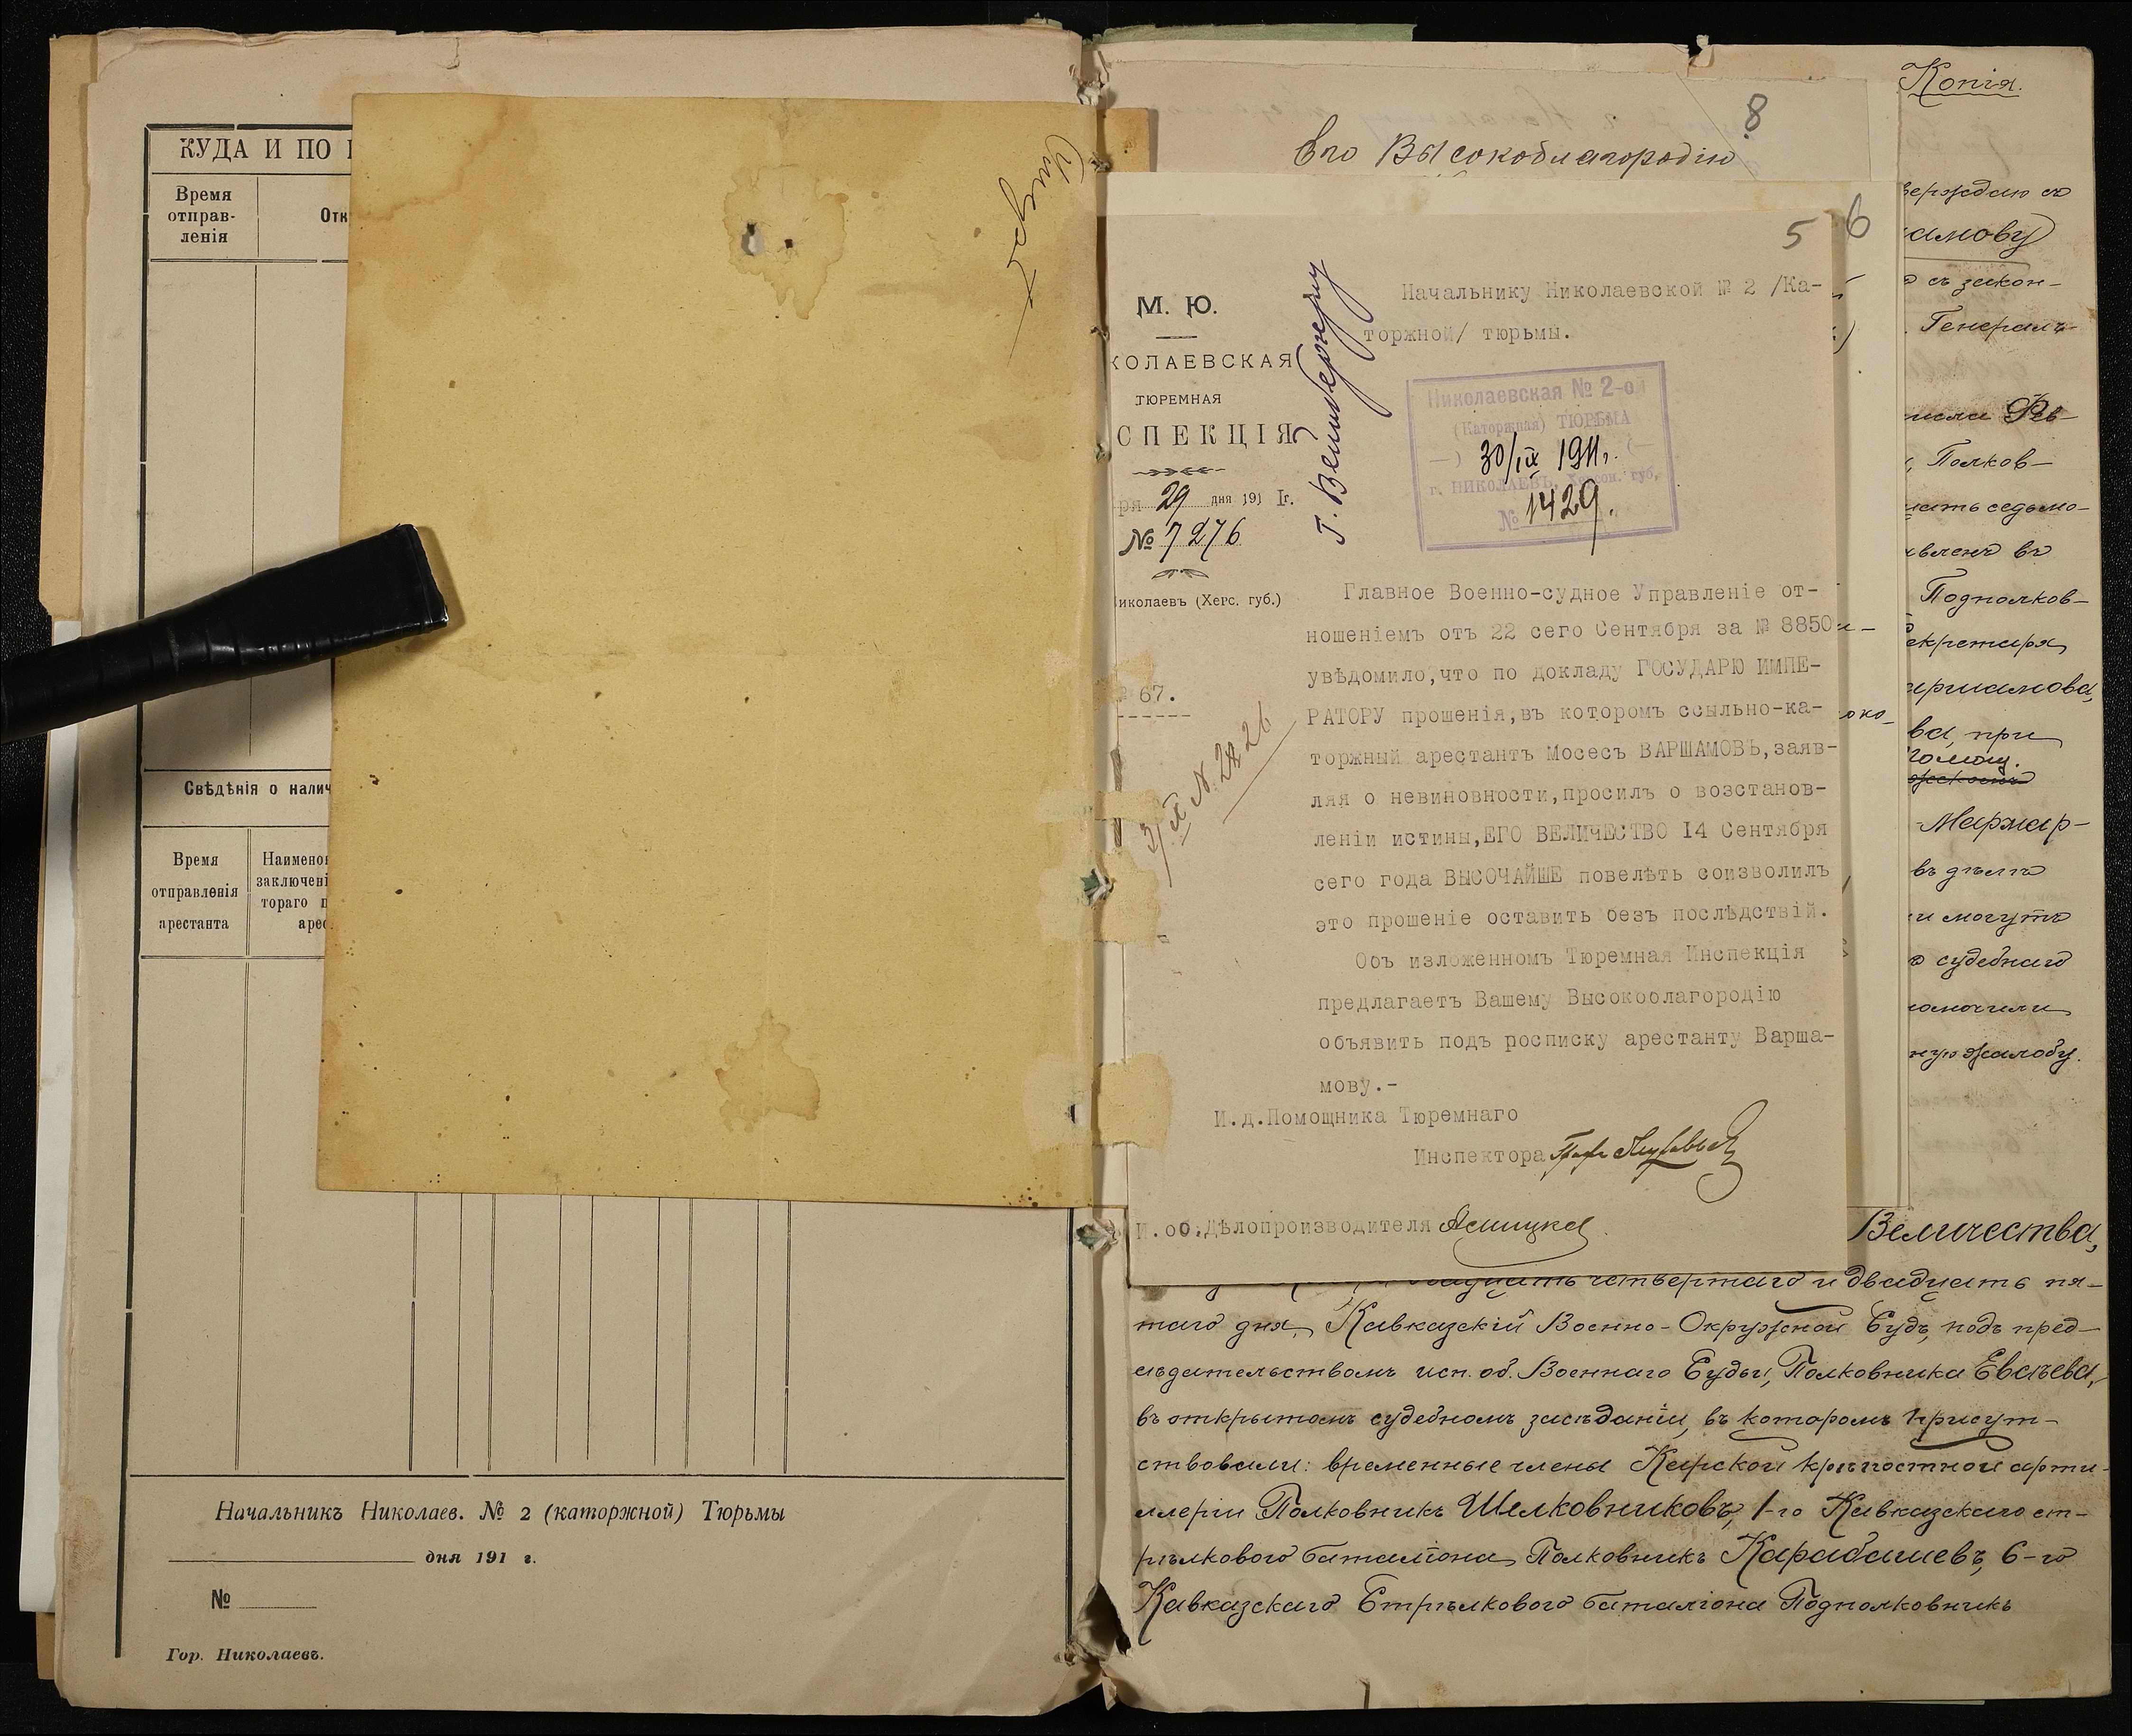 КУДА И ПО
Время
отправ-
ленія
Отк
Свѣдѣнія о налич
Время
отправленія
арестанта
Наимено
заключені
тораго п
арес
Начальникъ Николаев. № 2 (каторжной) Тюрьмы
дня 191 г.
№
Гор. Николаевъ.
Копія.
8
Его Высокоблагородію
6
5
М. Ю.
КОЛАЕВСКАЯ
ТЮРЕМНАЯ
СПЕКЦІЯ
ря 29 дня 191 I г.
№ 7276
иколаевъ (Херс. губ.)
67.
Начальнику Николаевской № 2 /Ка-
торжной/ тюрьмы.
Николаевская № 2-ой
(Каторжная) ТЮРЬМА
30/IX 1911 г.
г. НИКОЛАЕВЪ, Херсон. губ.
№ 1429.
Главное Военно-судное Управленіе от-
ношеніемъ отъ 22 сего Сентября за № 8850
увѣдомило,что по докладу ГОСУДАРЮ ИМПЕ-
РАТОРУ прошенія,въ которомъ ссыльно-ка-
торжный арестантъ Мосесъ ВАРШАМОВЪ,заяв-
ляя о невиновности,просилъ о возстанов-
леніи истины,ЕГО ВЕЛИЧЕСТВО I4 Сентября
сего года ВЫСОЧАЙШЕ повелѣть соизволилъ
это прошеніе оставить безъ послѣдствій.
Объ изложенномъ Тюремная Инспекція
предлагаетъ Вашему Высокоблагородію
объявить подъ росписку арестанту Варша-
мову.-
И.д.Помощника Тюремнаго
Инспектора
И.об.Дѣлопроизводителя
верждаю съ
амову
съ закон-
Генералъ-
Фев-
Полков-
седьмо-
вленъ въ
Подполков-
екретаря
ва, при
Мармар-
въ дѣлѣ
и могутъ
судебнаго
ную жалобу.
Величества,
четвертаго и двадцать пя-
таго дня, Кавказскій Военно-Окружной Судъ, подъ пред-
сѣдательствомъ исп. об. Военнаго Судьи, Полковника Евсѣева,
въ открытомъ судебномъ засѣданіи, въ которомъ присут-
ствовали: временные члены Карской крѣпостной арти-
ллеріи Полковникъ Шелковниковъ, 1-го Кавказскаго ст-
рѣлковаго баталіона Полковникъ Карабашевъ, 6-го
Кавказскаго Стрѣлковаго баталіона Подполковникъ